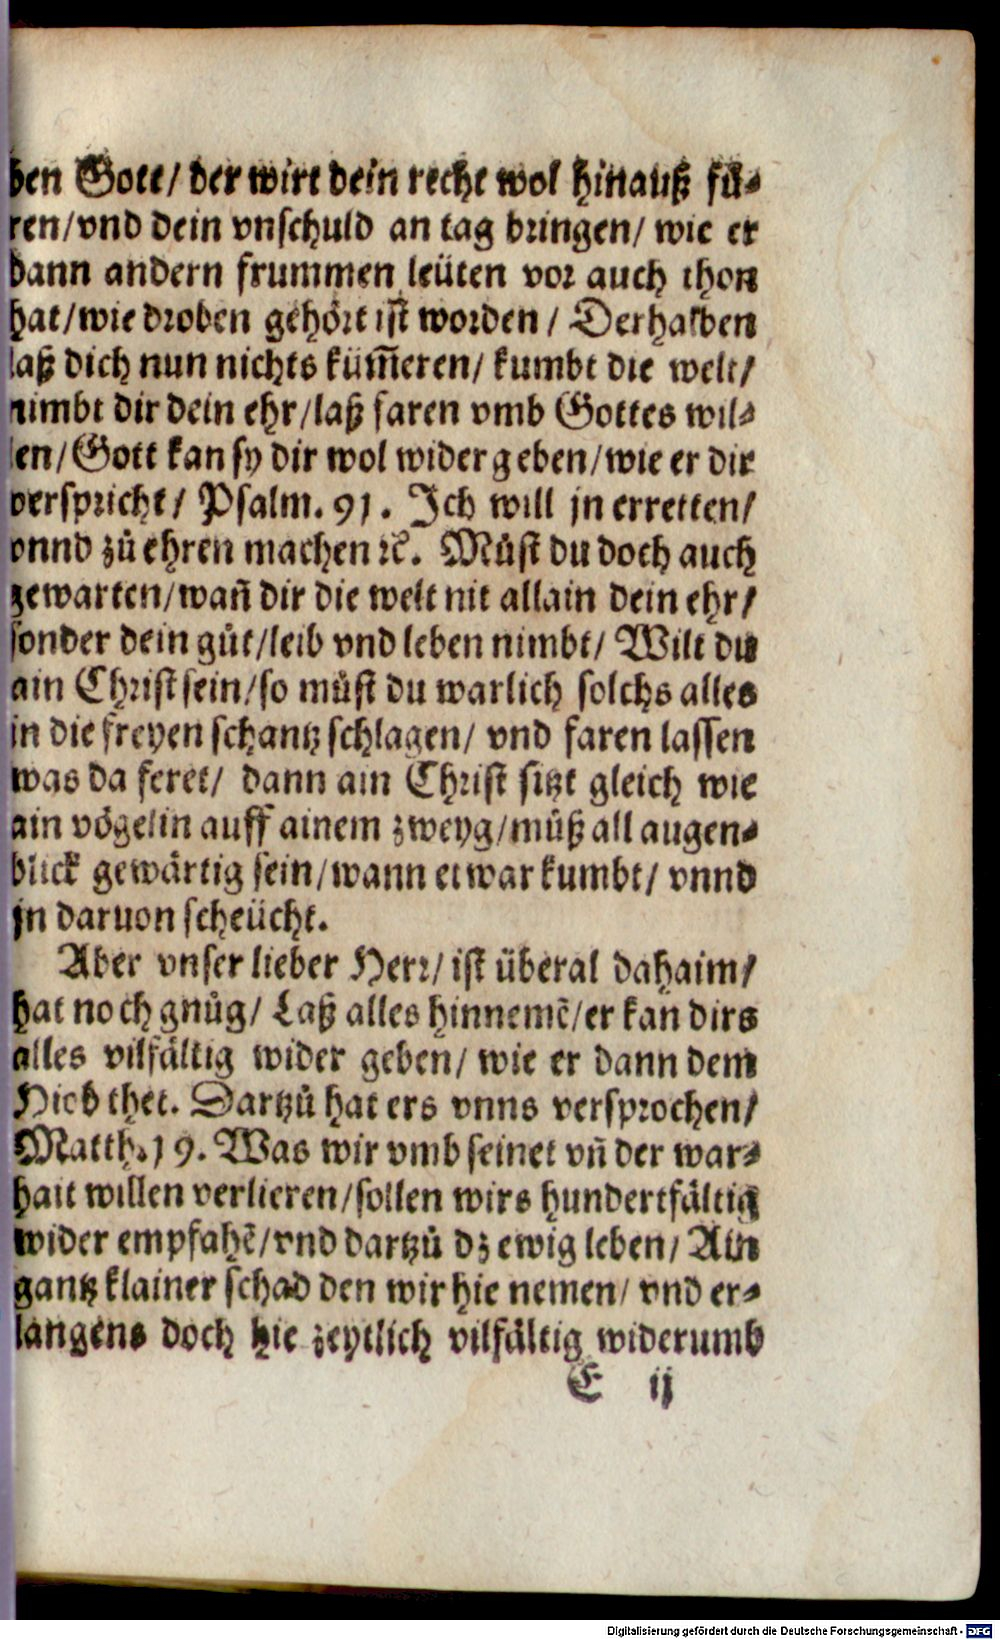 ben Gott/ der wirt dein recht wol hinauß fü⸗
ren/vnd dein vnschuld an tag bringen/ wie er
dann andern frummen leüten vor auch thon
hat/wie droben gehört ist worden / Derhalben
laß dich nun nichts küm̃eren/ kumbt die welt/
nimbt dir dein ehr/laß faren vmb Gottes wil⸗
len/Gott kan sy dir wol wider geben/wie er dir
verspricht/ Psalm. 91. Ich will jn erretten/
vnnd zů ehren machen ꝛc̃. Můst du doch auch
gewarten/wañ dir die welt nit allain dein ehr/
sonder dein gůt/leib vnd leben nimbt/ Wilt du
ain Christ sein/so můst du warlich solchs alles
in die freyen schantz schlagen/ vnd faren lassen
was da feret/ dann ain Christ sitzt gleich wie
ain vögelin auff ainem zweyg/můß all augen⸗
blick gewärtig sein/wann etwar kumbt/ vnnd
jn daruon scheücht.
Aber vnser lieber Herr/ ist überal dahaim/
hat noch gnůg/ Laß alles hinnemẽ/er kan dirs
alles vilfältig wider geben/ wie er dann dem
Hiob thet. Dartzů hat ers vnns versprochen/
Matth. 19. Was wir vmb seinet vñ der war⸗
hait willen verlieren/sollen wirs hundertfältig
wider empfahẽ/vnd dartzů dz ewig leben/ Ain
gantz klainer schad den wir hie nemen/ vnd er⸗
langens doch hie zeytlich vilfältig widerumb
E ij
Digitalisierung gefördert durch die Deutsche Forschungsgemeinschaft - DFG